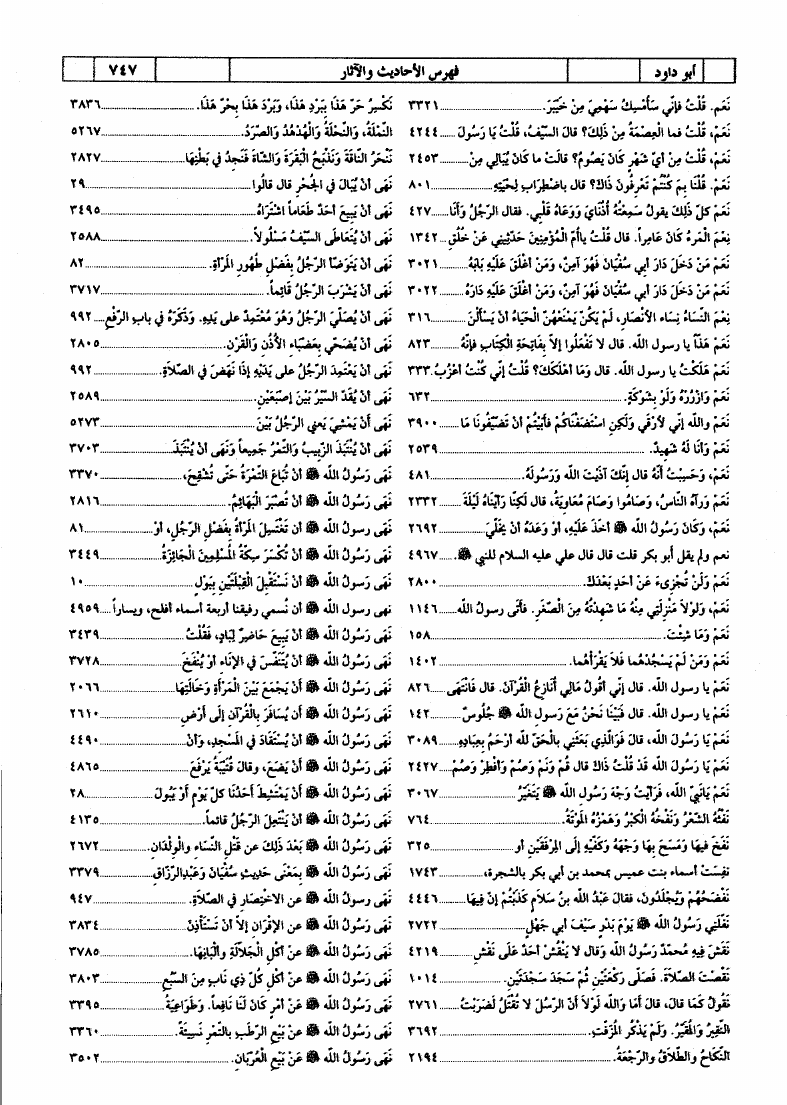 أبو داود
فهرس الأحاديث والآثار
٧٤٧
نَعَم. قُلْتُ فإنّي سَأُمْسِكُ سَهْمِيَ مِنْ خَيْبَرَ. ٣٣٢١
نَعَم، قُلْتُ فما الْعِصْمَةُ مِنْ ذلِكَ؟ قالَ السَّيْفُ، قُلْتُ يَا رَسُولَ ٤٢٤٤
نَعَم، قُلْتُ مِنْ أيّ شَهْرٍ كَانَ يَصُومُ؟ قالَتْ ما كانَ يُبَالِي مِنْ ٢٤٥٣
نَعَم. قُلْنَا بِمَ كُنْتُمْ تَعْرِفُونَ ذَاكَ؟ قال باضْطِرَابِ لِحْيَتِهِ ٨٠١
نَعَم كلّ ذلِكَ يقولُ سَمِعَتْهُ أُذُنَايَ وَوَعَاهُ قَلْبِي. فقال الرَّجُلُ وَأنَا ٤٢٧
نِعْمَ الْمَرْءُ كَانَ عَامِراً. قال قُلْتُ يأُمّ المُؤْمِنِينَ حَدّثِينِي عَنْ خُلُقِ ١٣٤٢
نَعَم مَنْ دَخَلَ دَارَ أبي سُفْيَانَ فَهُوَ آمِنٌ، وَمَنْ أغْلَقَ عَلَيْهِ بَابَهُ ٣٠٢١
نَعَم مَنْ دَخَلَ دَارَ أبي سُفْيَانَ فَهُوَ آمِنٌ، وَمَنْ أغْلَقَ عَلَيْهِ دَارَهُ ٣٠٢٢
نِعْمَ النِّسَاءُ نِساء الأنْصارِ، لَمْ يَكُنْ يَمْنَعُهُنّ الْحَيَاءُ أنْ يَسْألْنَ ٣١٦
نَعَم هَذّاً يا رسول الله. قال لا تَفْعَلُوا إلاّ بفَاتِحَةِ الْكِتَابِ فإنّهُ ٨٢٣
نَعَم هَلَكْتُ يا رسول الله. قال وَمَا أهْلَكَكَ؟ قُلْتُ إنّي كُنْتُ أعْزُبُ. ٣٣٣
نَعَم وَازْرُرْهُ وَلَوْ بِشَوْكَةٍ. ٦٣٢
نَعَم والله إنّي لأرْقِي وَلَكِنِ اسْتَضَفْنَاكُم فأَبَيْتُمْ أنْ تُضَيِّفُونَا مَا ٣٩٠٠
نَعَم وَأنَا لَهُ شَهِيدٌ. ٢٥٣٩
نَعَم، وَحَسِبْتُ أنّهُ قال إنّكَ آذَيْتَ الله وَرَسُولَهُ. ٤٨١
نَعَم وَرَآهُ النّاسُ، وَصَامُوا وَصَامَ مُعَاوِيَةُ، قال لَكِنّا رَأيْنَاهُ لَيْلَةَ ٢٣٣٢
نَعَم، وَكَانَ رَسُولُ الله ﷺ أخَذَ عَلَيْهِ، أوْ وَعَدَهُ أنْ يُخَلِّيَ ٢٦٩٢
نعم ولم يقل أبو بكر قلت قال قال علي عليه السلام للنبي ﷺ. ٤٩٦٧
نَعَم وَلَنْ تُجْزِىءَ عَنْ أحَدٍ بَعْدَكَ. ٢٨٠٠
نَعَم، وَلَوْلاَ مَنْزِلَتِي مِنْهُ مَا شَهِدْتُهُ مِنَ الصِّغَرِ. فأتَى رسولُ الله ١١٤٦
نَعَم وَمَا شِئْتَ. ١٥٨
نَعَم وَمَنْ لَمْ يَسْجُدْهُما فَلاَ يَقْرَأْهُما. ١٤٠٢
نَعَم يا رسول الله. قال إنّي أقُولُ مَالِي أُنَازِعُ الْقُرْآنَ. قال فَانْتَهَى ٨٢٦
نَعَم يا رسول الله. قال فَبَيْنَا نَحْنُ مَعَ رَسولِ الله ﷺ جُلُوسٌ ١٤٢
نَعَم يَا رَسُولَ الله، قال فَوَالّذِي بَعَثَنِي بالْحَقّ للهُ أرْحَمُ بِعِبَادِهِ ٣٠٨٩
نَعَم يَا رَسُولَ الله قَدْ قُلْتُ ذَاكَ قال قُمْ وَنَمْ وَصُمْ وَأفْطِرْ وَصُمْ ٢٤٢٧
نَعَم يَانَبِيّ الله، فَرَأيْتُ وَجْهَ رَسُولِ الله ﷺ يَتَغَيَّرُ ٣٠٦٧
نَفْثُهُ الشِّعْرُ وَنَفْخُهُ الْكِبْرُ وَهَمْزُهُ المُوْتَةُ. ٧٦٤
نَفَخَ فِيهَا وَمَسَحَ بِهَا وَجْهَهُ وَكَفَّيْهِ إلَى المِرْفَقَيْنِ أو ٣٢٥
نفِسَتْ أسماء بنت عميس بمحمد بن أبي بكر بالشجرة، ١٧٤٣
نَفْضَحُهُمْ وَيُجْلَدُونَ، فقالَ عَبْدُ الله بنُ سَلاَمٍ كَذَبْتُمْ إنّ فِيهَا ٤٤٤٦
نَفّلَنِي رَسُولُ الله ﷺ يَوْمَ بَدْرٍ سَيْفَ أبي جَهْلٍ ٢٧٢٢
نَقَشَ فِيهِ مُحمّدٌ رَسُولُ الله وَقال لا يَنْقُشْ أحَدٌ عَلَى نَقْشِ ٤٢١٩
نَقَصْتَ الصّلاَةَ. فَصَلّى رَكْعَتَيْنِ ثُمّ سَجَدَ سَجْدَتَيْنِ. ١٠١٤
نَقُولُ كمَا قالَ، قالَ أمَا وَالله لَوْلاَ أنّ الرّسُلَ لا تُقْتَلُ لَضَرَبْتُ ٢٧٦١
النّقِيرُ وَالمُقَيّرُ. وَلَمْ يَذْكُرْ المُزَفّتَ. ٣٦٩٢
النّكَاحُ والطّلاَقُ والرّجْعَةُ. ٢١٩٤
نَكْسِرُ حَرّ هَذَا بِبَرْدِ هَذَا، وَبَرْدَ هَذَا بِحَرّ هَذَا. ٣٨٣٦
النّمْلَةُ، وَالنّحْلَةُ وَالْهُدْهُدُ وَالصُّرَدُ. ٥٢٦٧
نَنْحَرُ النّاقَةَ وَنَذْبَحُ الْبَقَرَةَ وَالشّاةَ فَنَجِدُ في بَطْنِهَا ٢٨٢٧
نَهَى أنْ يُبَالَ في الْجُحْرِ قال قالُوا ٢٩
نَهَى أنْ يَبِيعَ أحَدٌ طَعَاماً اشْتَرَاهُ ٣٤٩٥
نَهَى أنْ يُتَعَاطَى السّيْفُ مَسْلُولاً. ٢٥٨٨
نَهَى أنْ يَتَوَضّأ الرّجُلُ بِفَضْلِ طَهُورِ المَرْأةِ. ٨٢
نَهَى أنْ يَشْرَبَ الرّجُلُ قَائِماً. ٣٧١٧
نَهَى أنْ يُصَلّيَ الرّجُلُ وَهُوَ مُعْتَمِدٌ على يَدِهِ. وَذَكَرَهُ في بابِ الرّفْعِ ٩٩٢
نَهَى أنْ يُضَحّي بِعَضْبَاءِ الأُذُنِ وَالْقَرْنِ. ٢٨٠٥
نَهَى أنْ يَعْتَمِدَ الرّجُلُ عَلى يَدَيْهِ إذَا نَهَضَ في الصّلاَةِ. ٩٩٢
نَهَى أنْ يُقَدّ السّيْرُ بَيْنَ إصْبَعَيْنِ. ٢٥٨٩
نَهَى أنْ يَمْشِيَ يَعني الرّجُلُ بَيْنَ ٥٢٧٣
نَهَى أنْ يُنْتَبَذَ الزّبِيبُ وَالتّمْرُ جَمِيعاً وَنَهَى أنْ يُنْتَبَذَ ٣٧٠٣
نَهَى رَسُولُ الله ﷺ أنْ تُبَاعَ الثّمْرَةُ حَتّى تُشْقِحَ، ٣٣٧٠
نَهَى رَسُولُ الله ﷺ أنْ تُصْبَرَ الْبَهَائِمُ. ٢٨١٦
نَهَى رسولُ الله ﷺ أن تَغْتَسِلَ المَرْأةُ بِفَضْلِ الرّجُلِ، أوْ ٨١
نَهَى رَسُولُ الله ﷺ أنْ تُكْسَرَ سِكّةُ المُسْلِمِينَ الْجَائِزَةُ ٣٤٤٩
نَهَى رَسولُ الله ﷺ أنْ نَسْتَقْبِلَ الْقِبْلَتَيْنِ بِبَوْلٍ ١٠
نهى رسول الله ﷺ أن نُسمي رفيقنا أربعة أسماء أفلح، ويساراً ٤٩٥٩
نَهَى رَسُولُ الله ﷺ أنْ يَبِيعَ حَاضِرٌ لِبَادٍ، فَقُلْتُ ٣٤٣٩
نَهَى رَسُولُ الله ﷺ أنْ يُتَنَفّسَ في الإنَاءِ أوْ يُنْفَخَ ٣٧٢٨
نَهَى رَسُولُ الله ﷺ أنْ يَجْمَعَ بَيْنَ المَرْأةِ وَخَالَتِهَا ٢٠٦٦
نَهَى رَسُولُ الله ﷺ أن يُسَافَرَ بِالْقُرْآنِ إلَى أرْضِ ٢٦١٠
نَهَى رَسُولُ الله ﷺ أنْ يُسْتَقَادَ في المَسْجِدِ، وَأنْ ٤٤٩٠
نَهَى رَسُولُ الله ﷺ أنْ يَضَعَ، وقالَ قُتَيْبَةُ يَرْفَعَ ٤٨٦٥
نَهَى رَسُولُ الله ﷺ أنْ يَمْتَشِطَ أحَدُنَا كلّ يَوْمٍ أوْ يَبُولَ ٢٨
نَهَى رَسُولُ الله ﷺ أنْ يَنْتَعِلَ الرّجُلُ قائماً. ٤١٣٥
نَهَى رَسُولُ الله ﷺ بَعْدَ ذَلِكَ عن قَتْلِ النّسَاءِ والْوِلْدَانِ. ٢٦٧٢
نَهَى رَسُولُ الله ﷺ بِمَعْنَى حَديثِ سُفْيَانَ وَعَبْدِالرّزّاقِ. ٣٣٧٩
نَهَى رسولُ الله ﷺ عن الاخْتِصَارِ في الصّلاَةِ. ٩٤٧
نَهَى رَسُولُ الله ﷺ عن الإقْرَانِ إلاّ أنْ تَسْتَأْذِنَ ٣٨٣٤
نَهَى رَسُولُ الله ﷺ عنْ أكْلِ الْجَلاّلَةِ وَألْبَانِهَا. ٣٧٨٥
نَهَى رَسُولُ الله ﷺ عن أكْلِ كُلّ ذِي نَابٍ مِنَ السّبُعِ ٣٨٠٣
نَهَى رَسُولُ الله ﷺ عَنْ أمْرٍ كَانَ لَنَا نَافِعاً. وَطَوَاعِيَةُ ٣٣٩٥
نَهَى رَسُولُ الله ﷺ عن بَيْعِ الرّطَبِ بالتّمْرِ نَسِيئَةً. ٣٣٦٠
نَهَى رَسُولُ الله ﷺ عَنْ بَيْعِ الْعُرْبَانِ. ٣٥٠٢